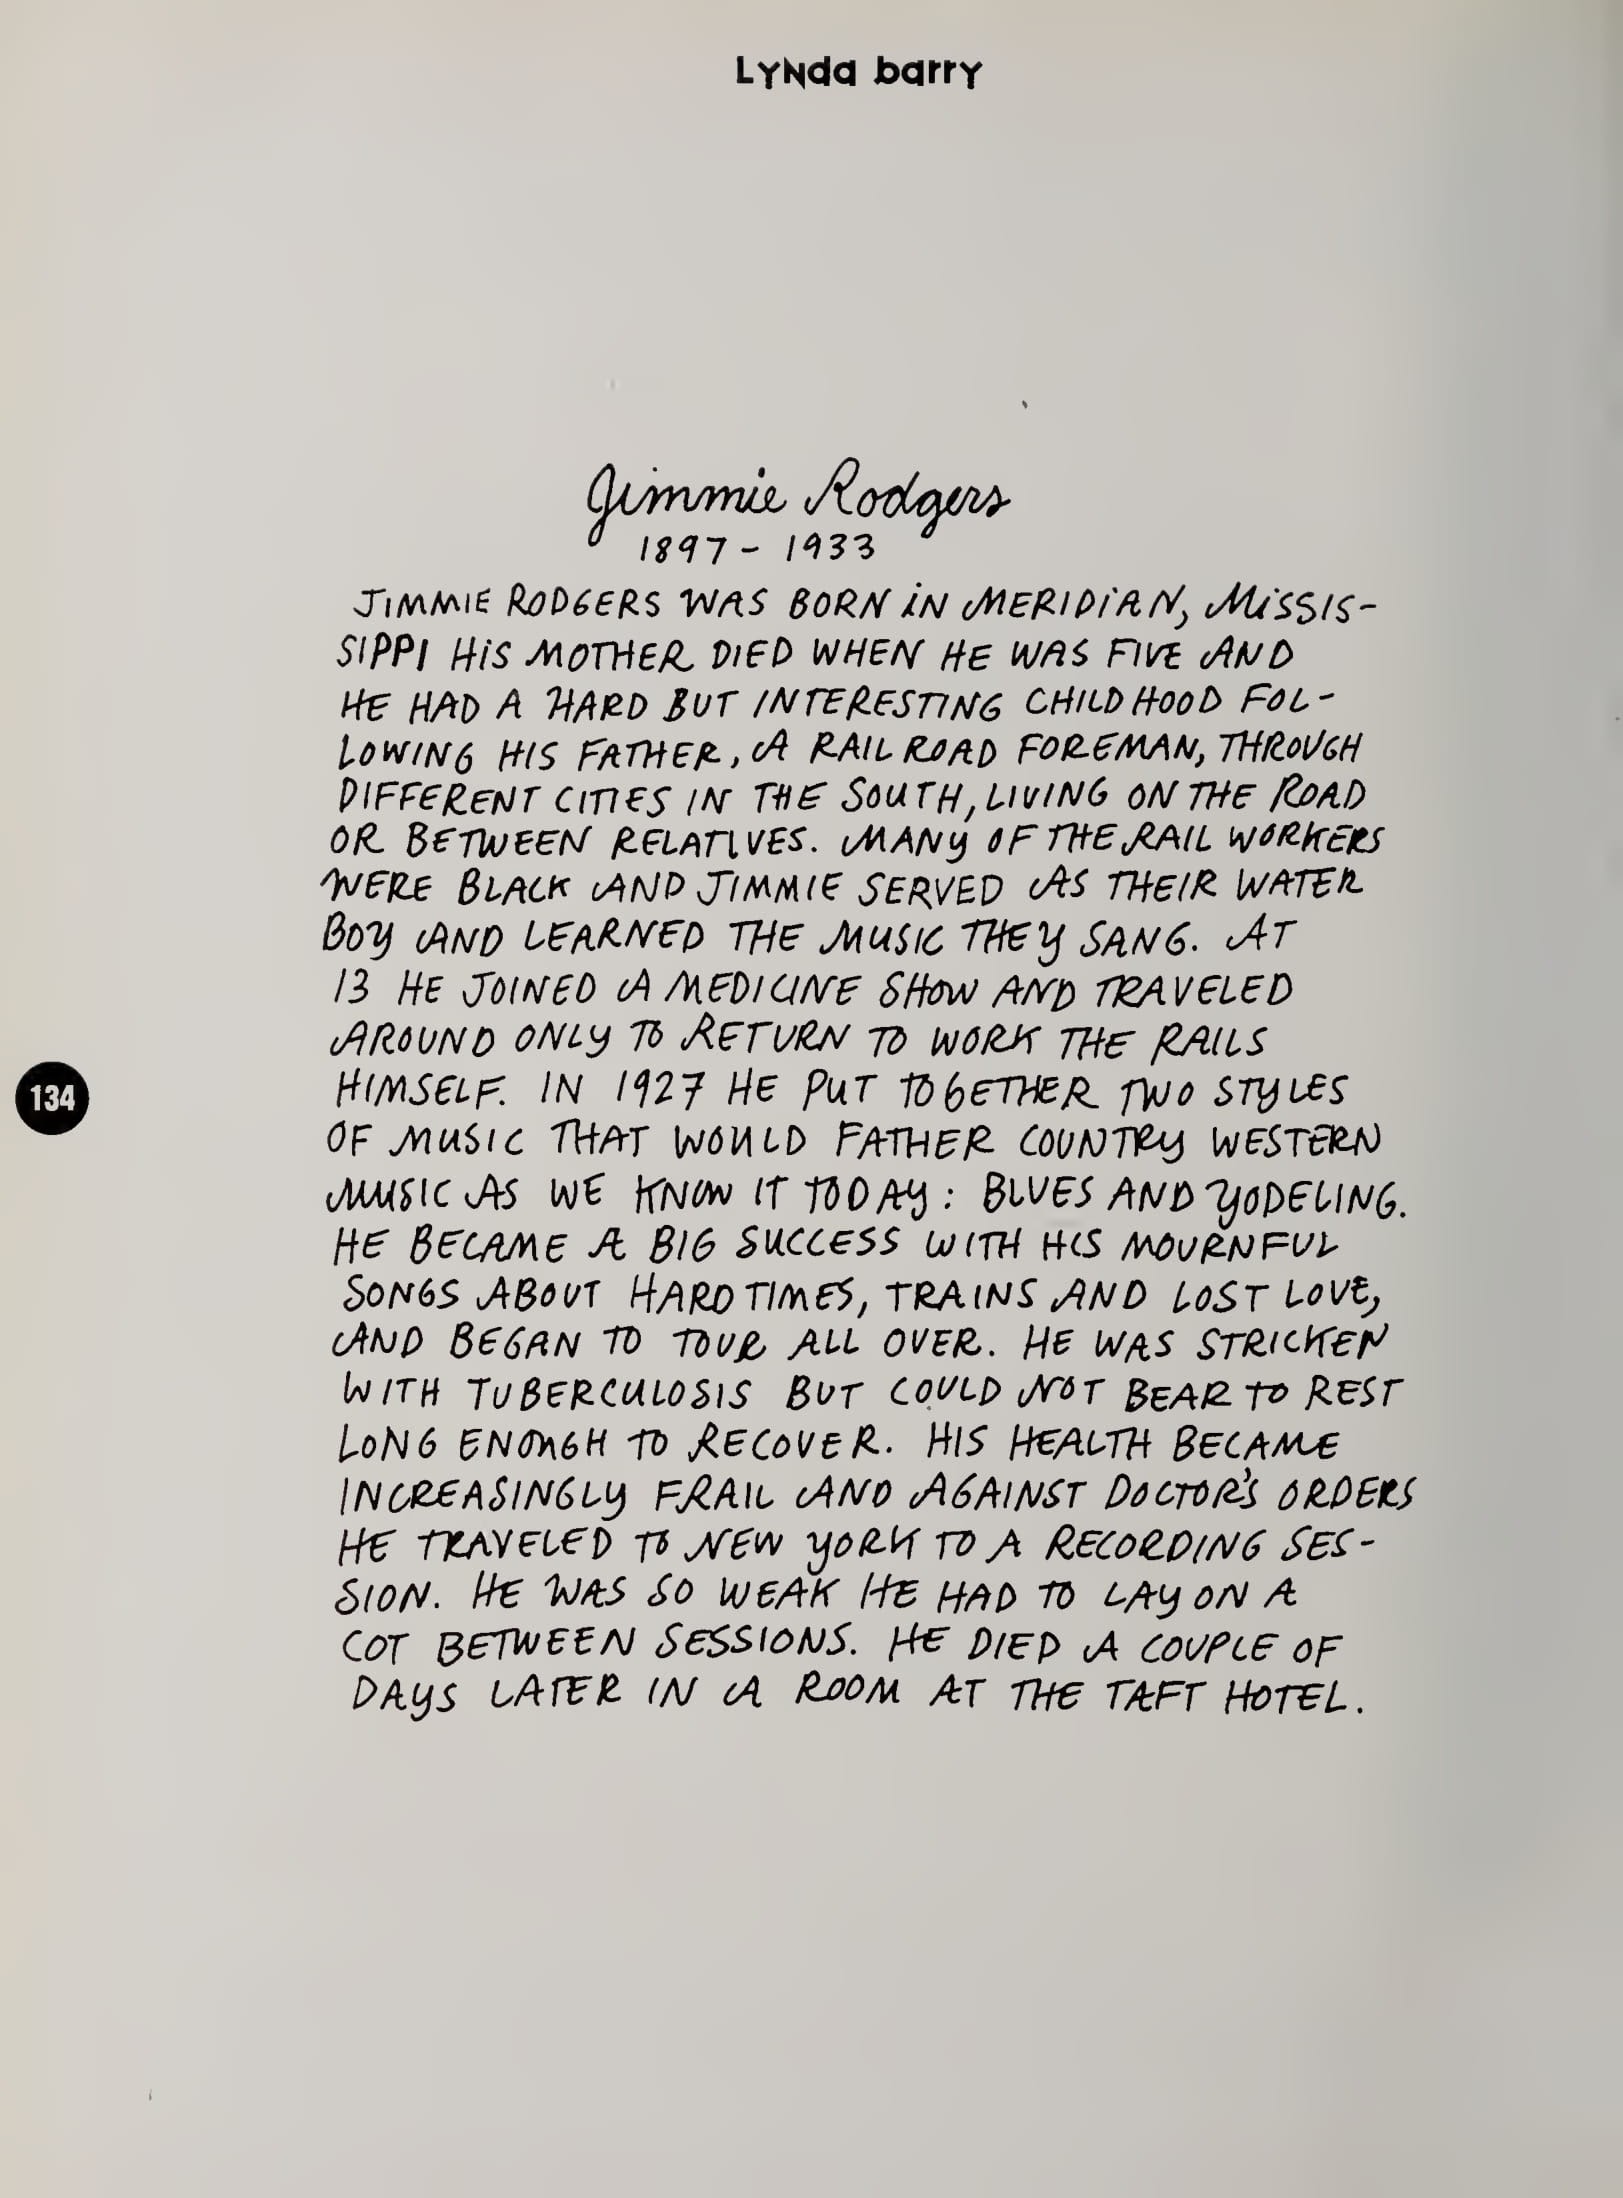 Lynda barry
Jimmie Rodgers
1897 - 1933
JIMMIE RODGERS WAS BORN IN MERIDIAN, MISSIS-
SIPPI HIS MOTHER DIED WHEN HE WAS FIVE AND
HE HAD A HARD BUT INTERESTING CHILDHOOD FOL-
LOWING HIS FATHER, A RAILROAD FOREMAN, THROUGH
DIFFERENT CITIES IN THE SOUTH, LIVING ON THE ROAD
OR BETWEEN RELATIVES. MANY OF THE RAIL WORKERS
WERE BLACK AND JIMMIE SERVED AS THEIR WATER
BOY AND LEARNED THE MUSIC THEY SANG. AT
13 HE JOINED A MEDICINE SHOW AND TRAVELED
AROUND ONLY TO RETURN TO WORK THE RAILS
134
HIMSELF. IN 1927 HE PUT TOGETHER TWO STYLES
OF MUSIC THAT WOULD FATHER COUNTRY WESTERN
MUSIC AS WE KNOW IT TODAY: BLUES AND YODELING.
HE BECAME A BIG SUCCESS WITH HIS MOURNFUL
SONGS ABOUT HARD TIMES, TRAINS AND LOST LOVE,
AND BEGAN TO TOUR ALL OVER. HE WAS STRICKEN
WITH TUBERCULOSIS BUT COULD NOT BEAR TO REST
LONG ENOUGH TO RECOVER. HIS HEALTH BECAME
INCREASINGLY FRAIL AND AGAINST DOCTOR'S ORDERS
HE TRAVELED TO NEW YORK TO A RECORDING SES-
SION. HE WAS SO WEAK HE HAD TO LAY ON A
COT BETWEEN SESSIONS. HE DIED A COUPLE OF
DAYS LATER IN A ROOM AT THE TAFT HOTEL.